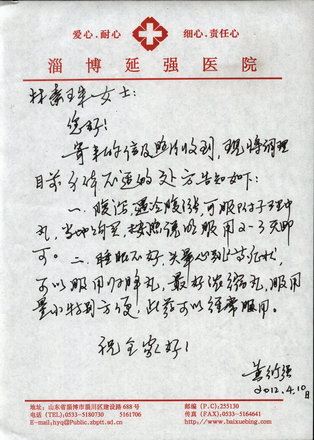 爱心、耐心 细心、责任心
淄博延强医院
女士:
您好!
寄来的信及照片收到,现将调理
目前身体不适的处方告知如下:
一、腹泻、遇冷腹胀,可服附子理中
丸,当即购买,按照说明服用2-3天即
可。二、睡眠不好,头晕心烦等症状,
可以服用 丸,最好浓缩丸,服用
量小特别方便,此药可以经常服用。
祝全家好!
黄衍强
2012.4.10日
地址:山东省淄博市淄川区建设路688号 邮编(P.C):255130
电话(TEL):0533-5180730 5161706 传真(FAX):0533-5164641
E-mail:hyq@Public.zbptt.sd.cn http://www.baixuebing.com